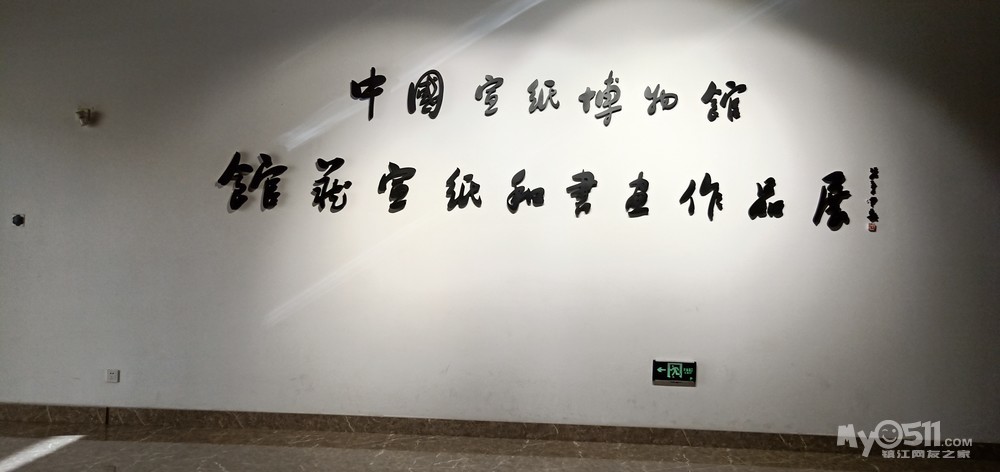 中國宣紙博物館
館藏宣紙和書畫作品展
My0511.COM
镇江网友之家